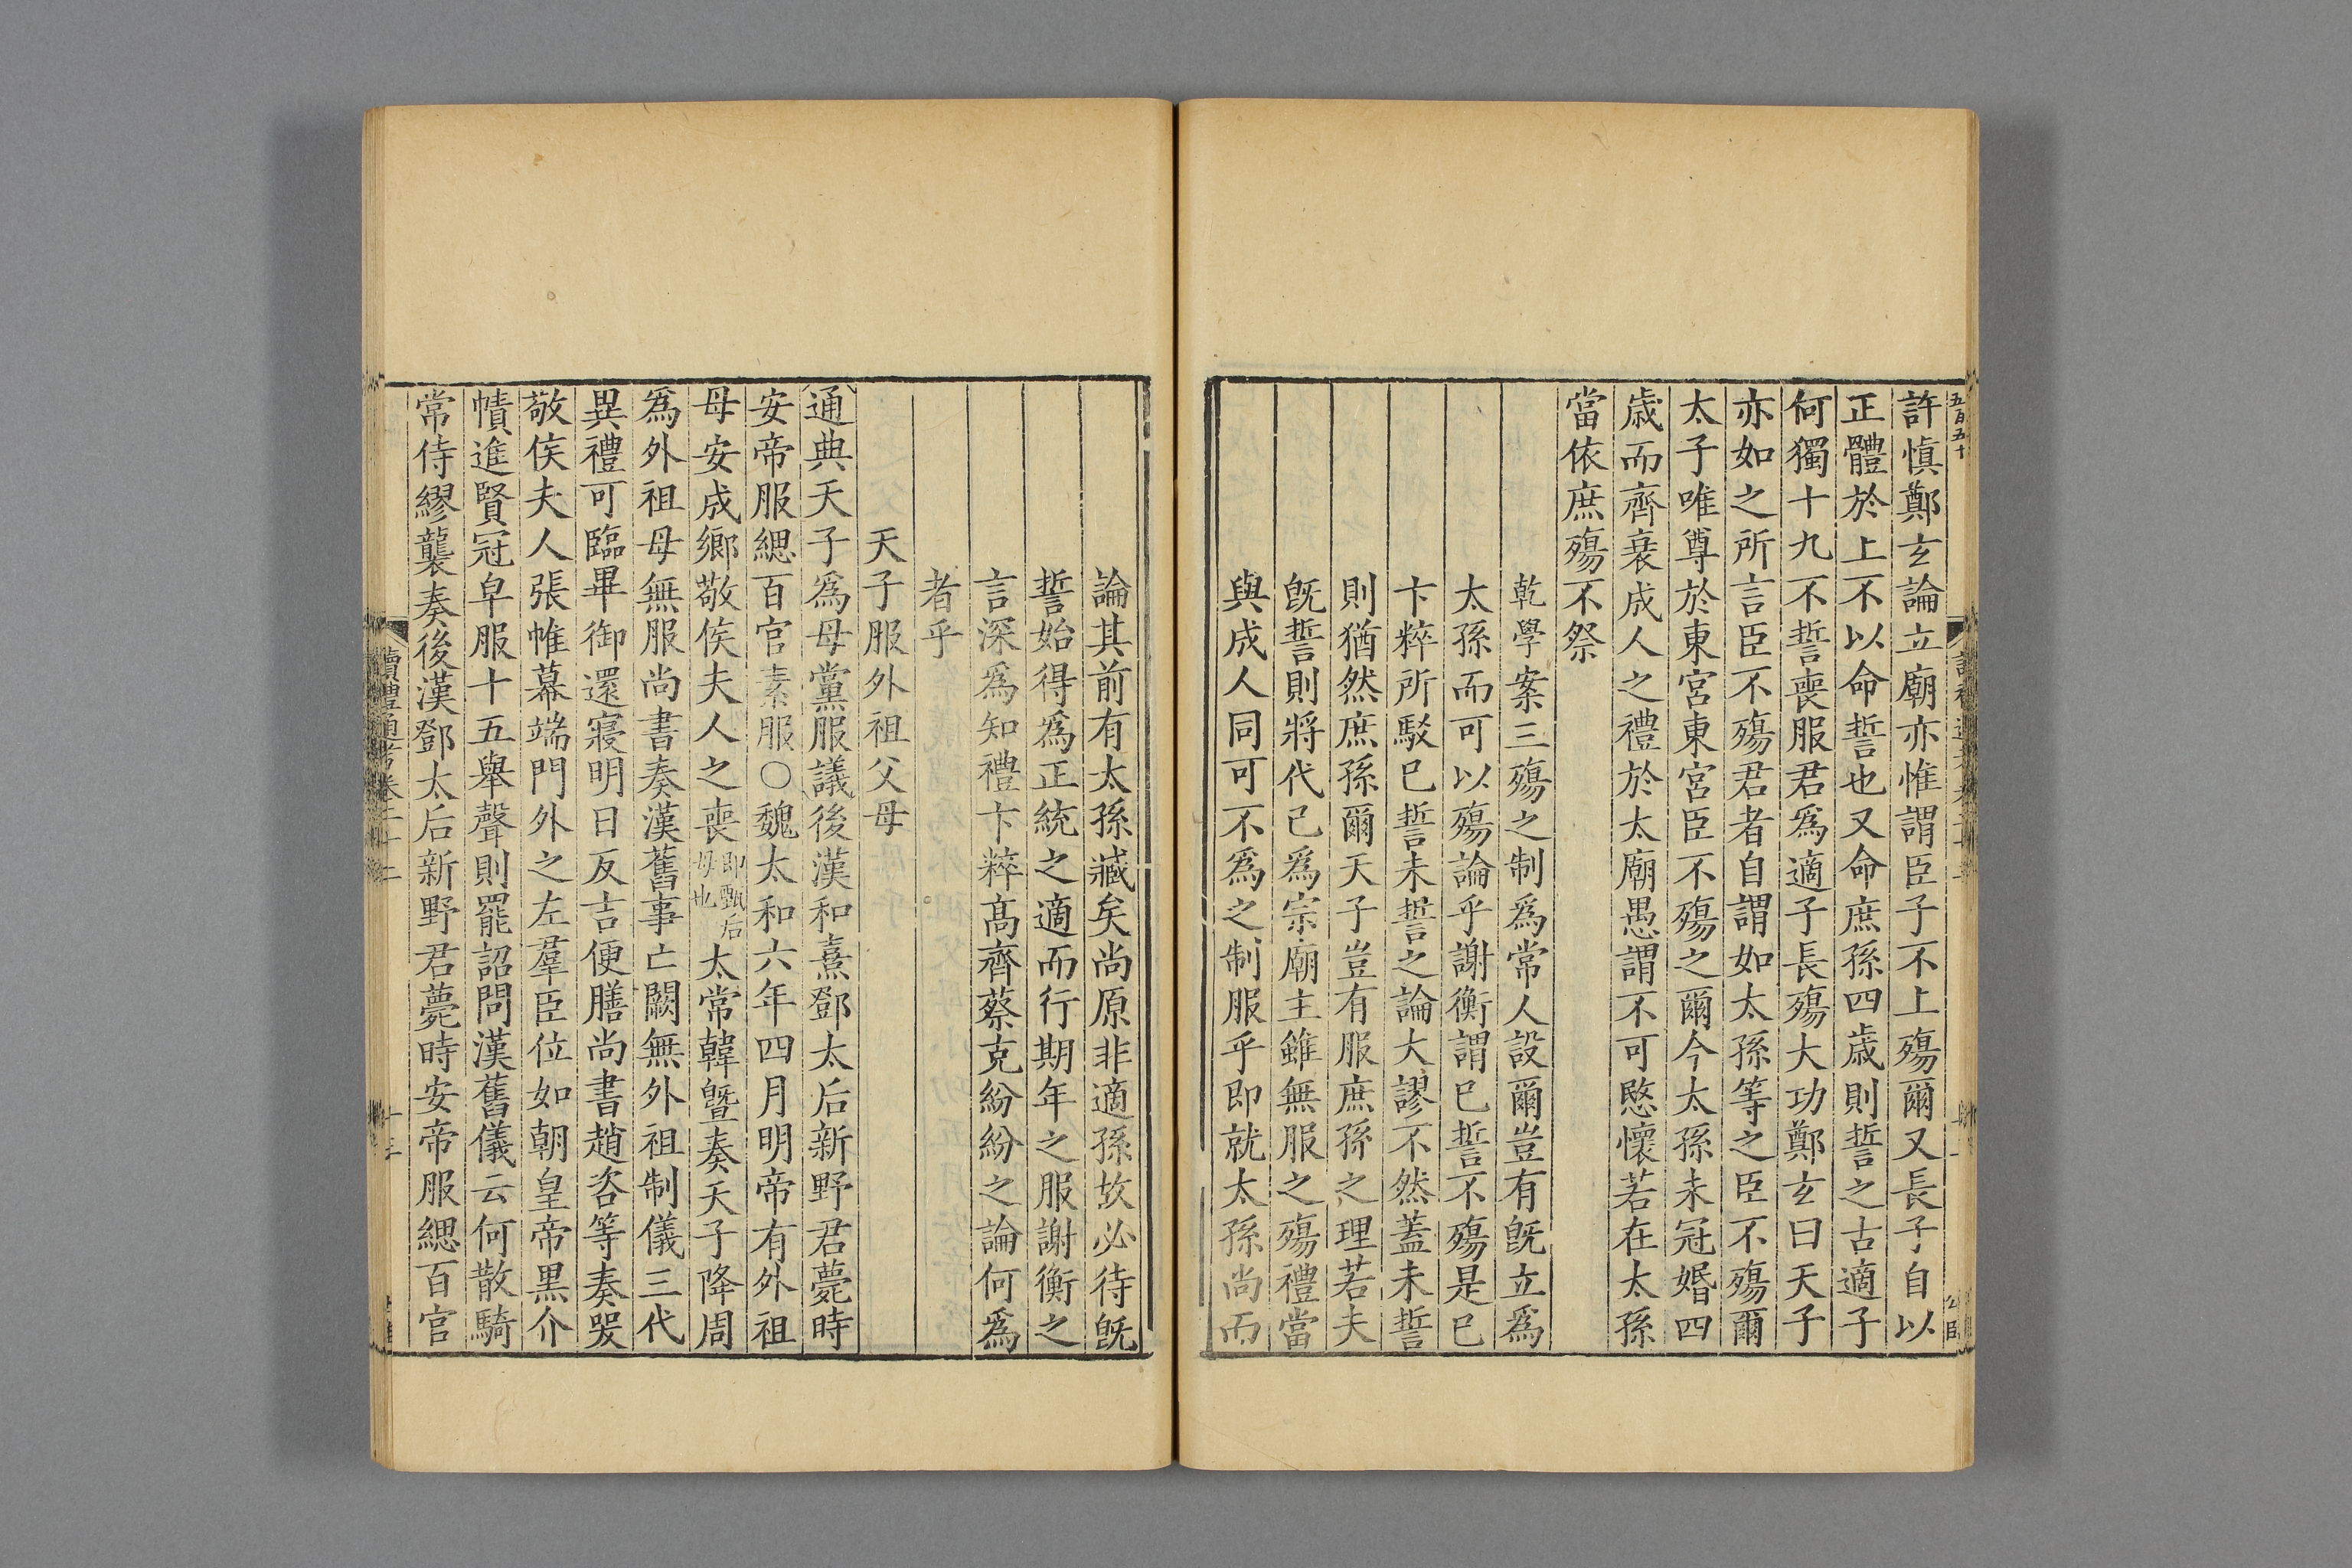 五百五十
許慎鄭玄論立廟亦惟謂臣子不上殤爾又長子自以
正體於上不以命誓也又命庶孫四歲則誓之古適子
何獨十九不誓喪服君爲適子長殤大功鄭玄曰天子
亦如之所言臣不殤君者自謂如太孫等之臣不殤爾
太子唯尊於東宮東宮臣不殤之爾今太孫未冠婚四
歲而齊衰成人之禮於太廟愚謂不可愍懷若在太孫
當依庶殤不祭
乾學案三殤之制爲常人設爾豈有旣立爲
太孫而可以殤論乎謝衡謂已誓不殤是已
卞粹所駁已誓未誓之論大謬不然蓋未誓
則猶然庶孫爾天子豈有服庶孫之理若夫
旣誓則將代已爲宗廟主雖無服之殤禮當
與成人同可不爲之制服乎即就太孫尚而
論其前有太孫臧矣尚原非適孫故必待旣
誓始得爲正統之適而行期年之服謝衡之
言深爲知禮卞粹高齊蔡克紛紛之論何爲
者乎
天子服外祖父母
通典天子爲母黨服議後漢和熹鄧太后新野君薨時
安帝服緦百官素服○魏太和六年四月明帝有外祖
母安成鄉敬侯夫人之喪即甄后母也太常韓曁奏天子降周
爲外祖母無服尚書奏漢舊事亡闕無外祖制儀三代
異禮可臨畢御還寢明日反吉便膳尚書趙咨等奏哭
敬侯夫人張帷幕端門外之左羣臣位如朝皇帝黑介
幘進賢冠皁服十五舉聲則罷詔問漢舊儀云何散騎
常侍繆襲奏後漢鄧太后新野君薨時安帝服緦百官
讀禮通考卷二十二
十三